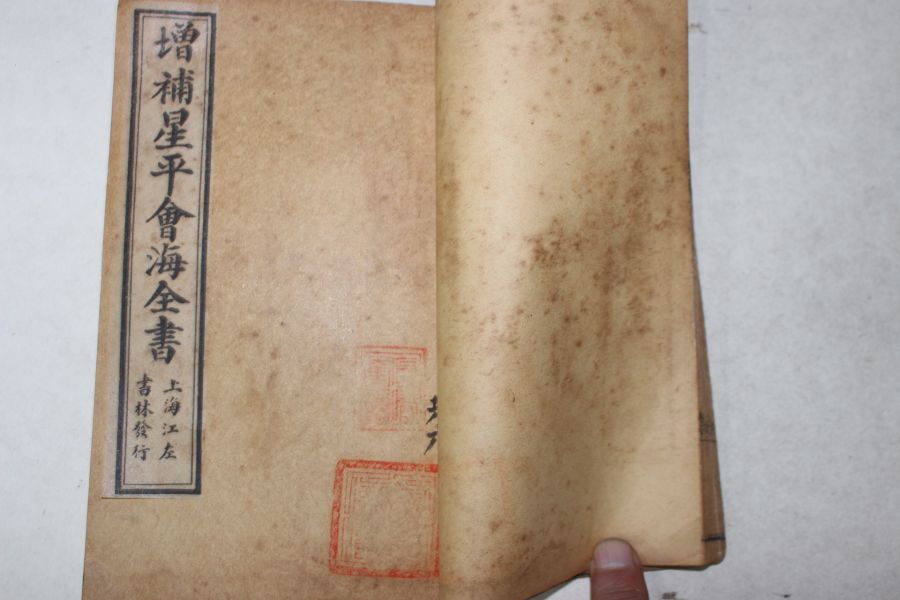 增補星平會海全書
上海江左
書林發行